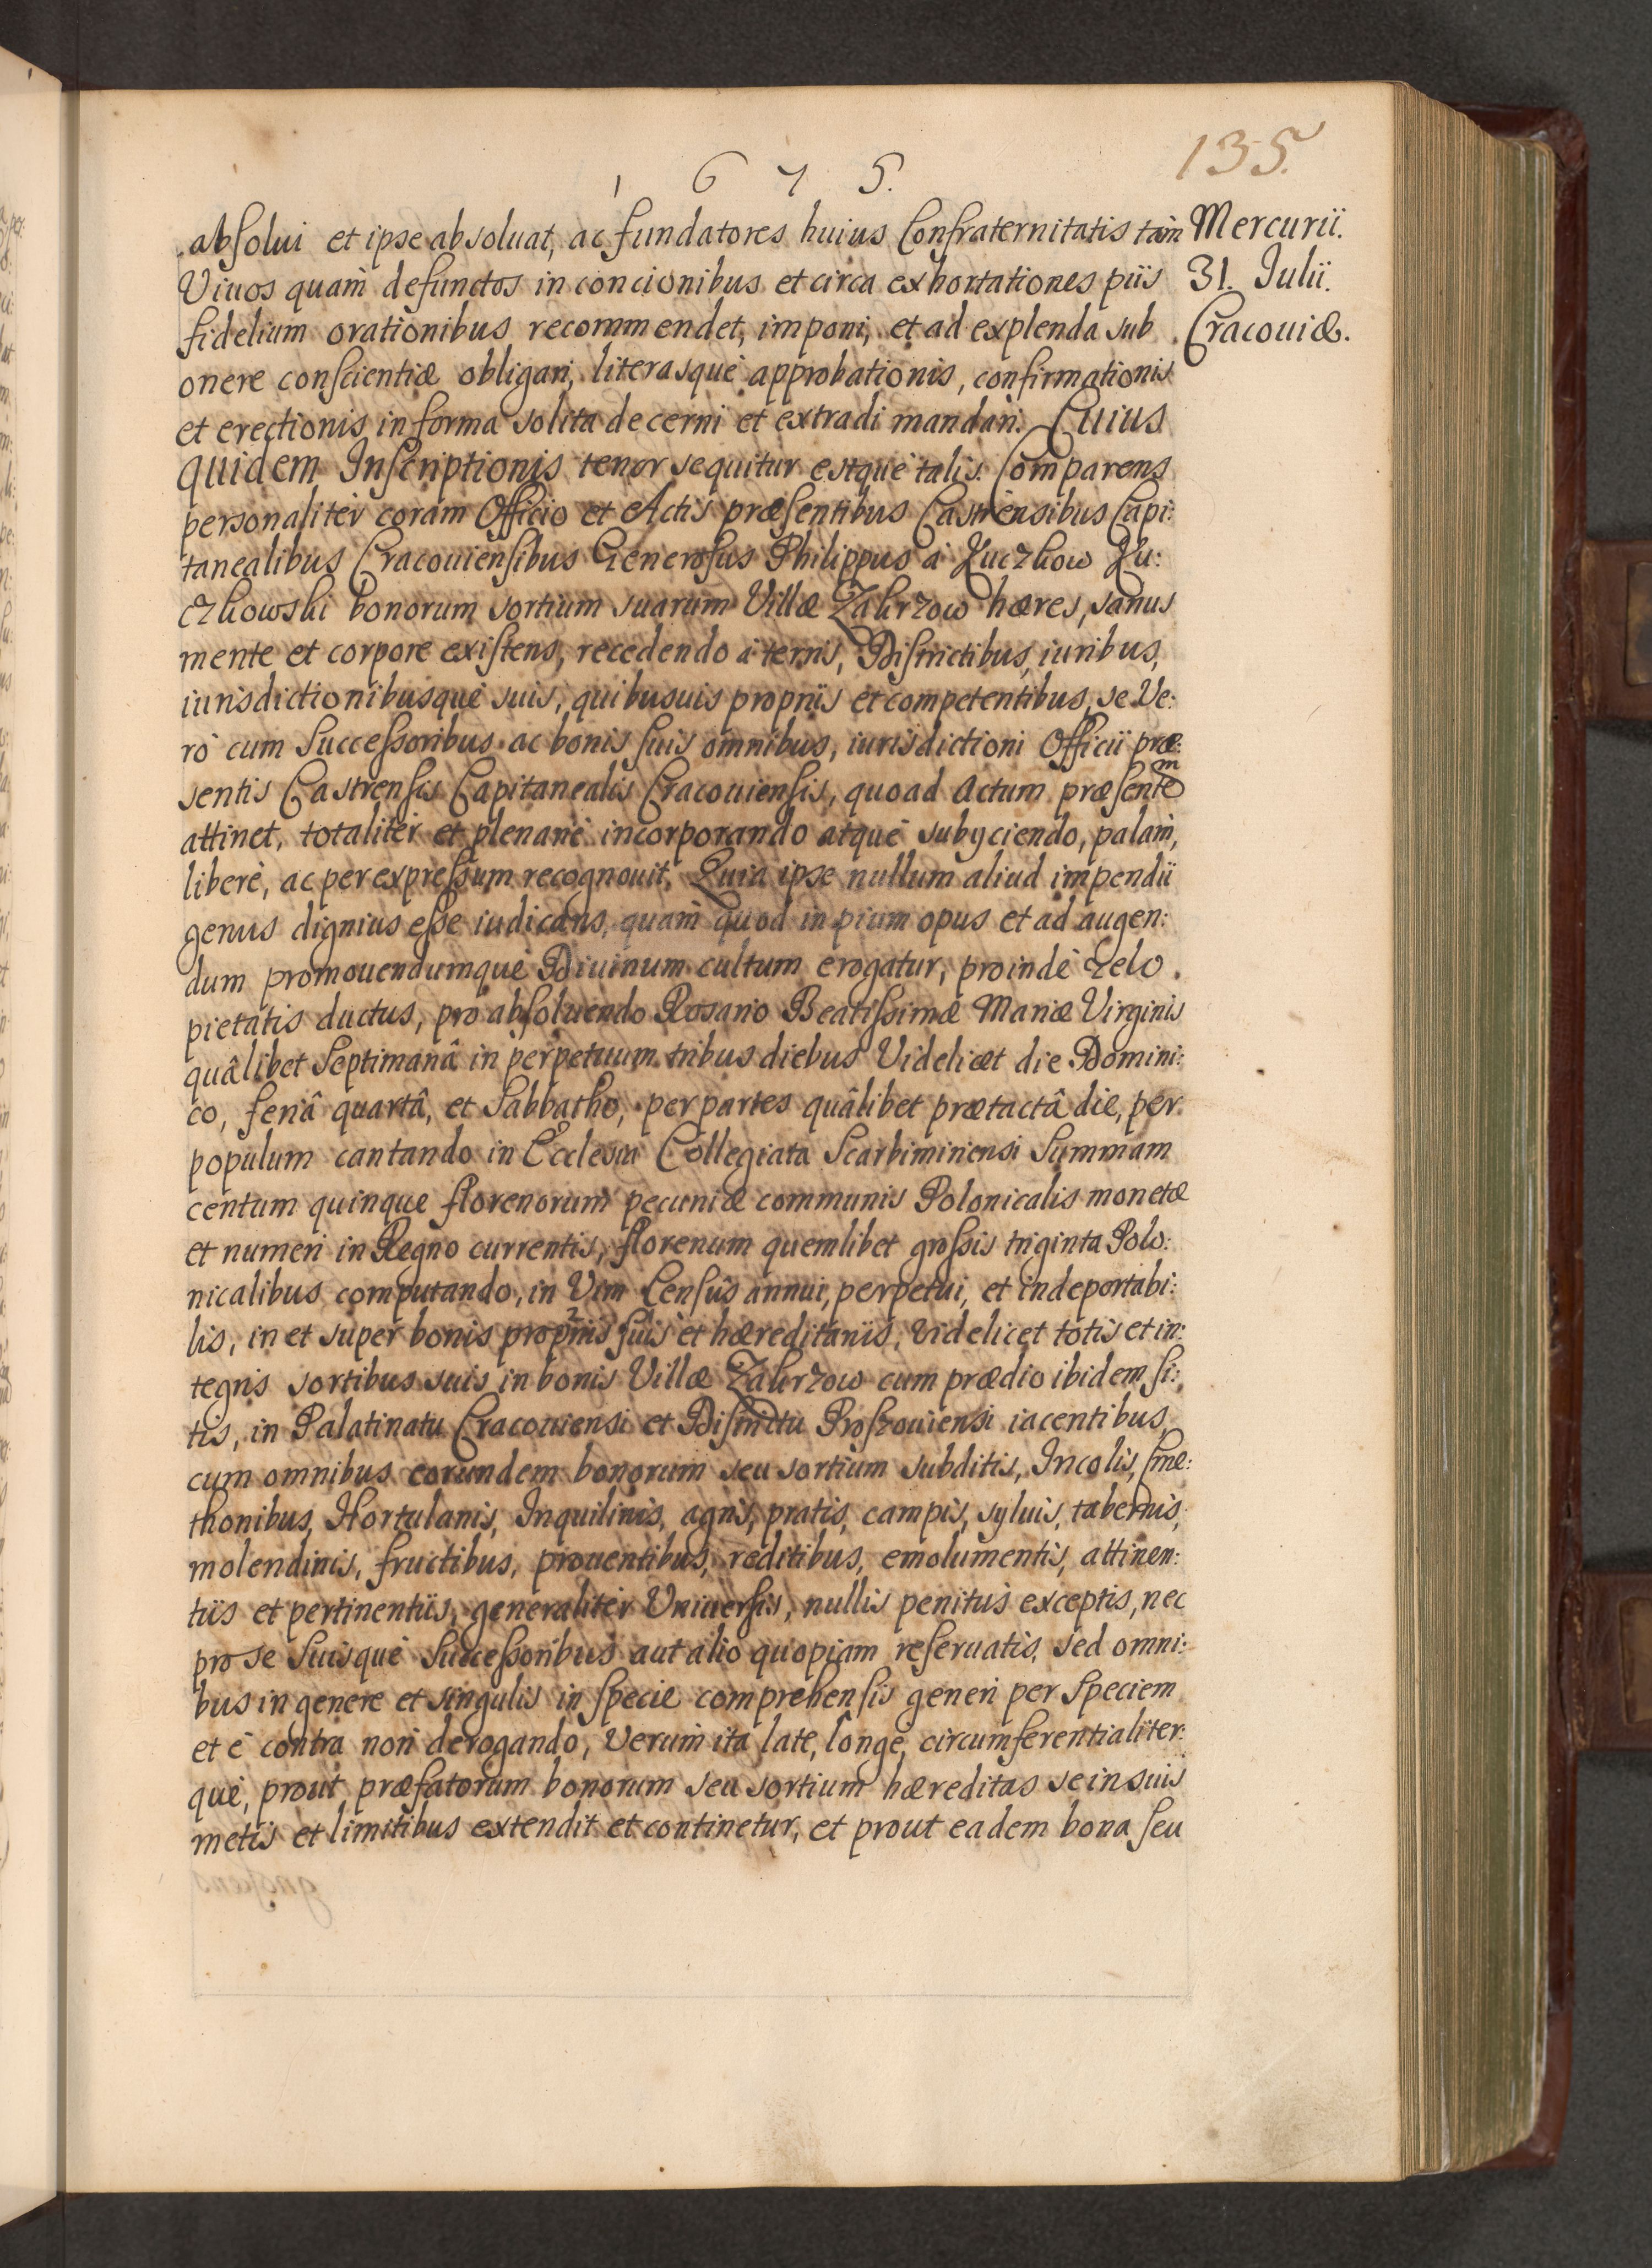 135.
1 6 7 5.
absolui et ipse absoluat, ac fundatores huius Confraternitatis tàm
Viuos quàm defunctos in concionibus et circa exhortationes piis
fidelium orationibus recommendet, imponi, et ad explenda sub
onere conscientiæ obligari, literasque approbationis, confirmationis
et erectionis in forma solita decerni et extradi mandari. Cuius
quidem Inscriptionis tenor sequitur estque talis. Comparens
personaliter coram Officio et Actis præsentibus Castrensibus Capi:
tanealibus Cracouiensibus Generosus Philippus à Zuczkow Zu:
czkowski bonorum sortium suarum Villæ Zakrzow hæres, sanus
mente et corpore existens, recedendo à terris, Districtibus, iuribus,
iurisdictionibusque suis, quibusuis propriis et competentibus, se Ve:
rò cum Successoribus ac bonis suis omnibus, iurisdictioni Officii præ:
sentis Castrensis Capitanealis Cracouiensis, quoad Actum præsentem
attinet, totaliter et plenariè incorporando atque subijciendo, palàm,
liberè, ac per expressum recognouit, Quia ipse nullum aliud impendii
genus dignius esse iudicans, quàm quod in pium opus et ad augen:
dum promouendumque Diuinum cultum erogatur, proinde zelo
pietatis ductus, pro absoluendo Rosario Beatissimæ Mariæ Virginis
quâlibet Septimanâ in perpetuum tribus diebus Videlicet die Domini:
co, feriâ quartâ, et Sabbatho, per partes quâlibet prætactâ die, per
populum cantando in Ecclesia Collegiata Scarbimiriensi Summam
centum quinque florenorum pecuniæ communis Polonicalis monetæ
et numeri in Regno currentis, florenum quemlibet grossis triginta Polo:
nicalibus computando, in Vim Censûs annui, perpetui, et indeportabi:
lis, in et super bonis propriis suis et hæreditariis, videlicet totis et in:
tegris sortibus suis in bonis Villæ Zakrzow cum prædio ibidem si:
tis, in Palatinatu Cracouiensi et Districtu Proszouiensi iacentibus,
cum omnibus eorundem bonorum seu sortium subditis, Incolis, Cme:
thonibus, Hortulanis, Inquilinis, agris, pratis, campis, syluis, tabernis,
molendinis, fructibus, prouentibus, reditibus, emolumentis, attinen:
tiis et pertinentiis, generaliter Vniuersis, nullis penitus exceptis, nec
pro se suisque Successoribus aut alio quopiam reseruatis, sed omni:
bus in genere et singulis in specie comprehensis generi per speciem
et è contra non derogando, Verùm ita late, longe, circumferentialiter:
que, prout præfatorum bonorum seu sortium hæreditas se in suis
metis et limitibus extendit et continetur, et prout eadem bona seu
Mercurii.
31. Iulii.
Cracouiæ.